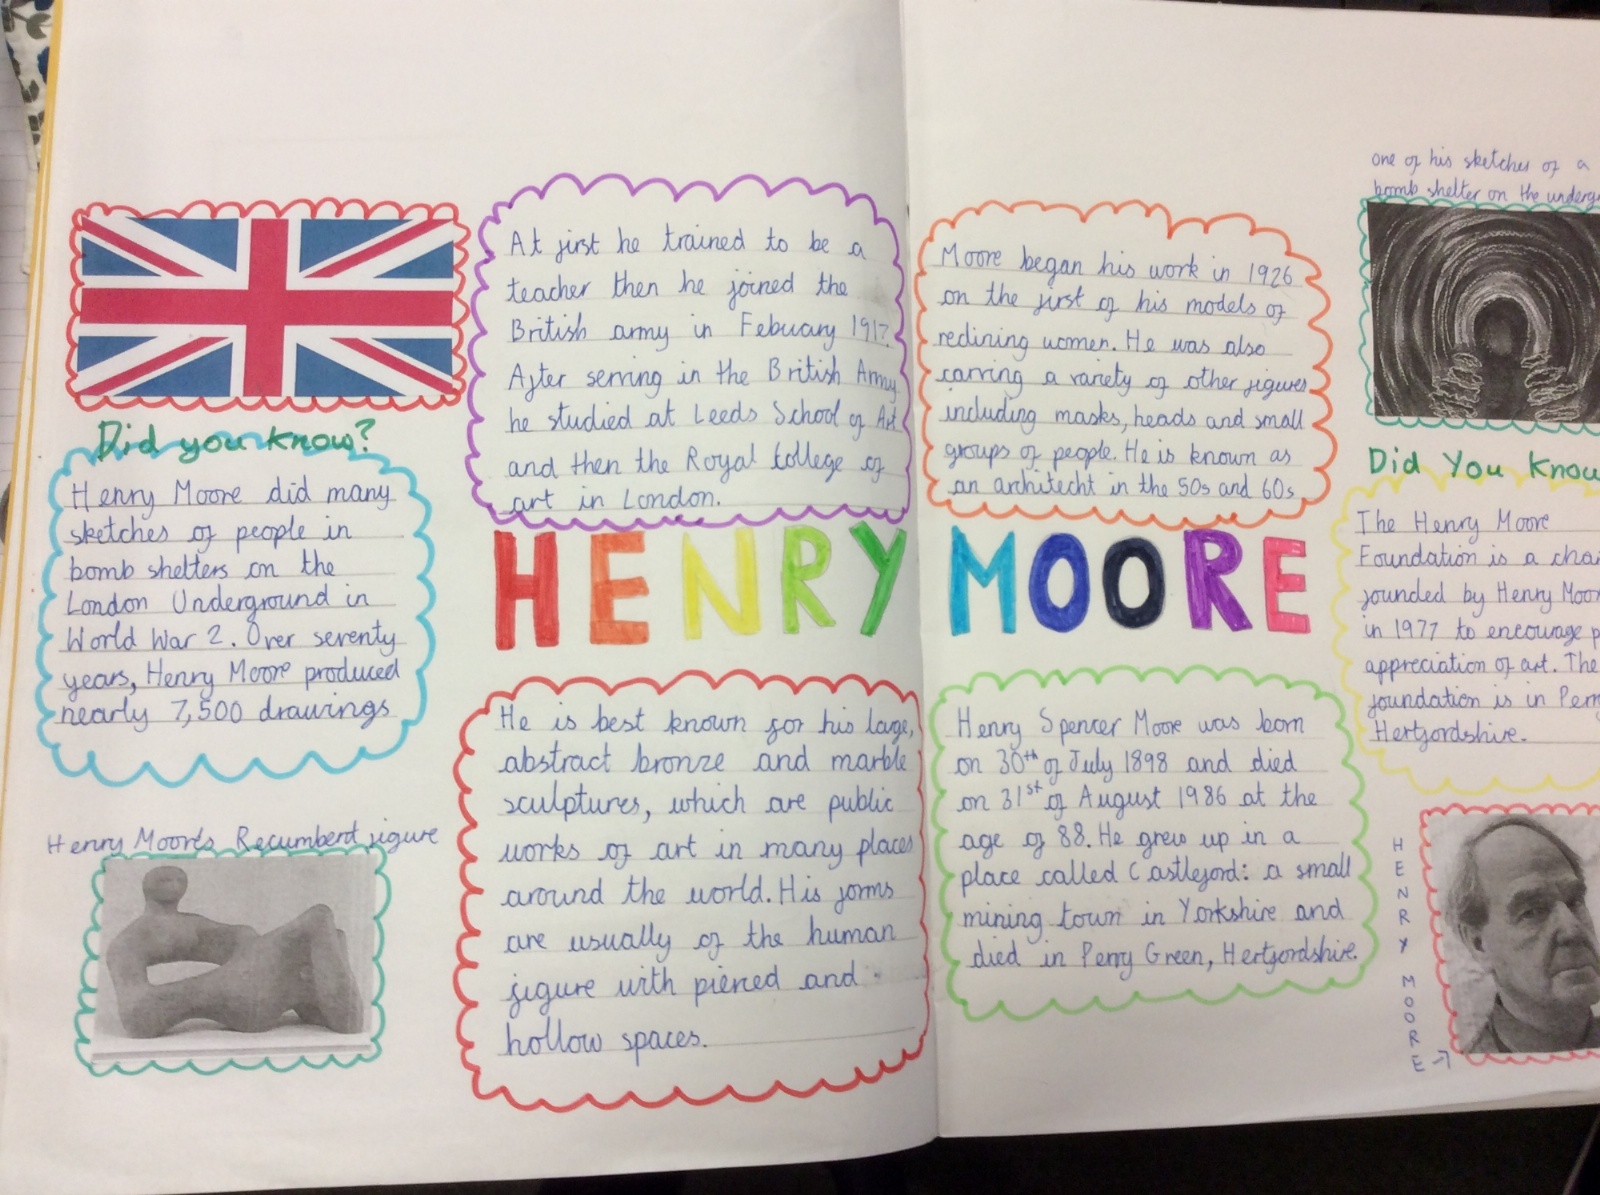 Did you know?
Henry Moore did many
sketches of people in
bomb shelters on the
London Underground in
World War 2. Over seventy
years, Henry Moore produced
nearly 7,500 drawings
Henry Moore's Recumbent figure
At first he trained to be a
teacher then he joined the
British army in Febuary 1917.
After serving in the British Army
he studied at Leeds School of Art
and then the Royal College of
art in London.
HENRY MOORE
He is best known for his large,
abstract bronze and marble
sculptures, which are public
works of art in many places
around the world. His forms
are usually of the human
figure with pierced and
hollow spaces.
Moore began his work in 1926
on the first of his models of
reclining women. He was also
carving a variety of other figures
including masks, heads and small
groups of people. He is known as
an architecht in the 50s and 60s
Henry Spencer Moore was born
on 30th of July 1898 and died
on 31st of August 1986 at the
age of 88. He grew up in a
place called Castleford: a small
mining town in Yorkshire and
died in Perry Green, Hertfordshire.
one of his sketches of a
bomb shelter on the
Did You Know
The Henry Moore
Foundation is a
founded by Henry
in 1977 to encourage
appreciation of art. The
foundation is in
Hertfordshire.
HENRY MOORE →